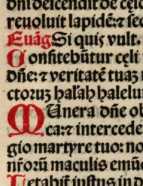 oni descendit de celo
reuoluit lapidē: ⁊ sec
Euāg Si quis vult.
Confitebūtur celi
dn̄e: ⁊ veritatē tuaꝫ
ctoruꝫ hal'ah halelui
Munera dn̄e ob
ca: ⁊ intercede
gio martyre tuo: no
nr̄oꝝ maculis emū
Letabit̄ iustus in d